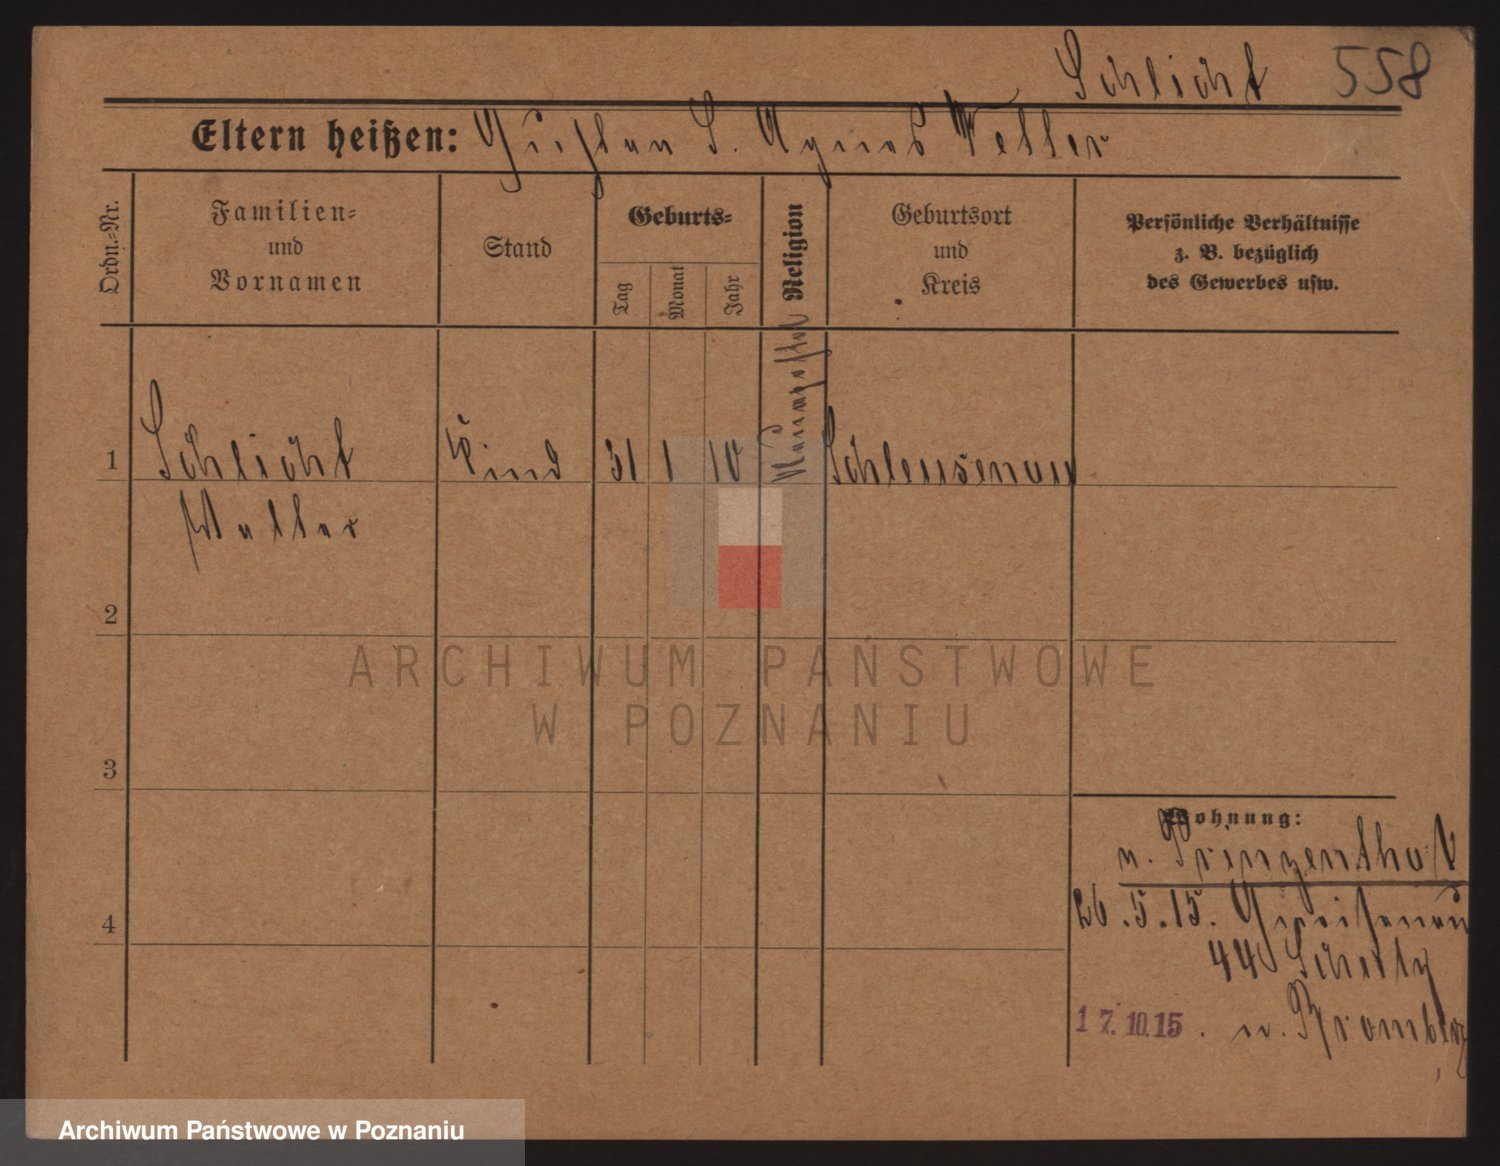 Schlicht 558
Eltern heißen: Gustav S. Agnes Feller
Ordn.-Nr.
Familien-
und
Vornamen
Stand
Geburts-
Tag
Monat
Jahr
Religion
Geburtsort
und
Kreis
Persönliche Verhältnisse
z. B. bezüglich
des Gewerbes usw.
1 Schlicht Kind 31 1 10 Schleusenau
Walter
2
3
4
Wohnung:
n. Prinzenthal
26.5.15.
44
17.10.15. n. Bromberg
ARCHIWUM PAŃSTWOWE
W POZNANIU
Archiwum Państwowe w Poznaniu